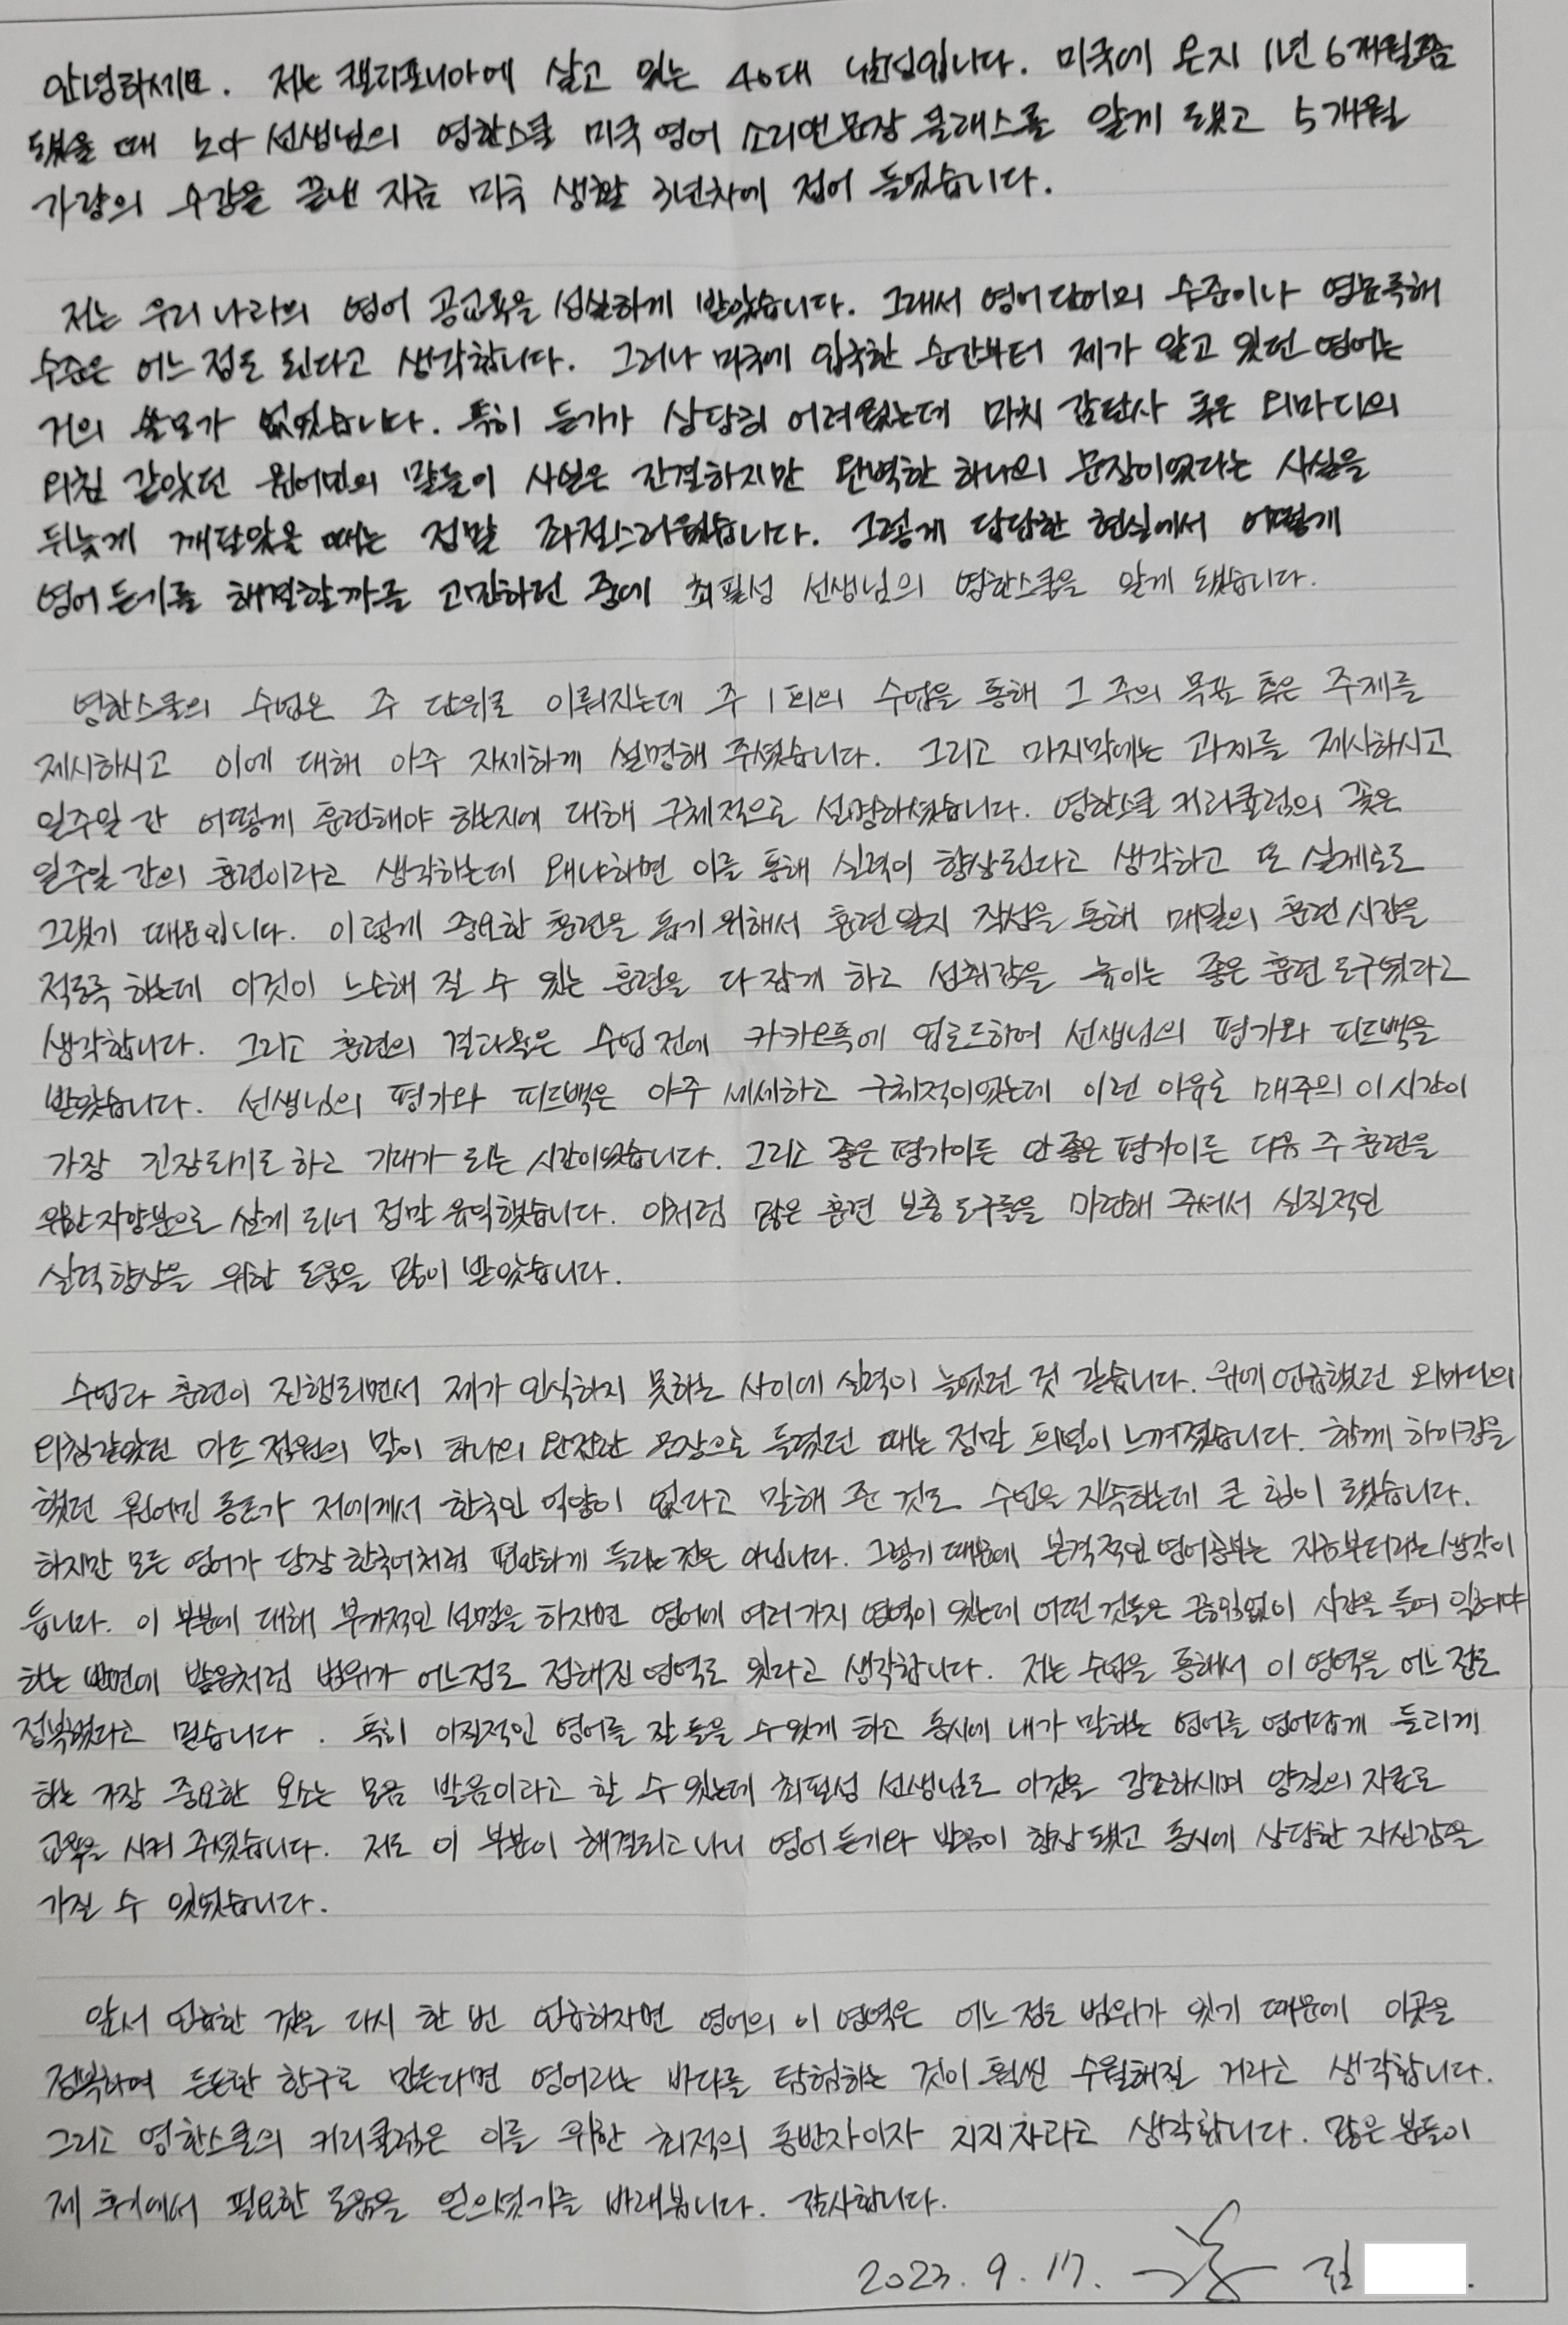 안녕하세요. 저는 캘리포니아에 살고 있는 40대 남성입니다. 미국에 온지 1년 6개월쯤
됐을 때 노아 선생님의 영한스쿨 미국 영어 소리연문장 클래스를 알게 됐고 5개월
가량의 수강을 끝낸 지금 미국 생활 3년차에 접어 들었습니다.
저는 우리 나라의 영어 공교육을 성실하게 받았습니다. 그래서 영어단어의 수준이나 영문독해
수준은 어느 정도 된다고 생각합니다. 그러나 미국에 입국한 순간부터 제가 알고 있던 영어는
거의 쓸모가 없었습니다. 특히 듣기가 상당히 어려웠는데 마치 감탄사 혹은 외마디의
외침 같았던 원어민의 말들이 사실은 간결하지만 완벽한 하나의 문장이었다는 사실을
뒤늦게 깨달았을 때는 정말 좌절스러웠습니다. 그렇게 답답한 현실에서 어떻게
영어 듣기를 해결할까를 고민하던 중에 최필성 선생님의 영한스쿨을 알게 됐습니다.
영한스쿨의 수업은 주 단위로 이뤄지는데 주 1회의 수업을 통해 그 주의 목표 혹은 주제를
제시하시고 이에 대해 아주 자세하게 설명해 주셨습니다. 그리고 마지막에는 과제를 제시하시고
일주일 간 어떻게 훈련해야 하는지에 대해 구체적으로 설명하셨습니다. 영한스쿨 커리큘럼의 꽃은
일주일 간의 훈련이라고 생각하는데 왜냐하면 이를 통해 실력이 향상된다고 생각하고 또 실제로도
그랬기 때문입니다. 이렇게 중요한 훈련을 돕기 위해서 훈련 일지 작성을 통해 매일의 훈련 시간을
적도록 하는데 이것이 느슨해 질 수 있는 훈련을 다 잡게 하고 성취감을 높이는 좋은 훈련 도구였다고
생각합니다. 그리고 훈련의 결과물은 수업 전에 카카오톡에 업로드하여 선생님의 평가와 피드백을
받았습니다. 선생님의 평가와 피드백은 아주 세세하고 구체적이었는데 이런 이유로 매주의 이 시간이
가장 긴장되기도 하고 기대가 되는 시간이었습니다. 그리고 좋은 평가이든 안 좋은 평가이든 다음 주 훈련을
위한 자양분으로 삼게 되어 정말 유익했습니다. 이처럼 많은 훈련 보충 도구들을 마련해 주셔서 실질적인
실력 향상을 위한 도움을 많이 받았습니다.
수업과 훈련이 진행되면서 제가 인식하지 못하는 사이에 실력이 늘었던 것 같습니다. 위에 언급했던 외마디의
외침같았던 마트 직원의 말이 하나의 완전한 문장으로 들렸던 때는 정말 희열이 느껴졌습니다. 함께 하이킹을
했던 원어민 동료가 저에게서 한국인 억양이 없다고 말해 준 것도 수업을 지속하는데 큰 힘이 됐습니다.
하지만 모든 영어가 당장 한국어처럼 편안하게 들리는 것은 아닙니다. 그렇기 때문에 본격적인 영어공부는 지금부터라는 생각이
듭니다. 이 부분에 대해 부가적인 설명을 하자면 영어에 여러가지 영역이 있는데 어떤 것들은 끊임없이 시간을 들여 익혀야
하는 반면에 발음처럼 범위가 어느정도 정해진 영역도 있다고 생각합니다. 저는 수업을 통해서 이 영역을 어느 정도
정복했다고 믿습니다. 특히 이질적인 영어를 잘 들을 수 있게 하고 동시에 내가 말하는 영어를 영어답게 들리게
하는 가장 중요한 요소는 모음 발음이라고 할 수 있는데 최필성 선생님도 이것을 강조하시며 양질의 자료로
교육을 시켜 주셨습니다. 저도 이 부분이 해결되고 나니 영어 듣기와 발음이 향상 됐고 동시에 상당한 자신감을
가질 수 있었습니다.
앞서 언급한 것을 다시 한 번 언급하자면 영어의 이 영역은 어느 정도 범위가 있기 때문에 이곳을
정복하여 든든한 항구로 만든다면 영어라는 바다를 탐험하는 것이 훨씬 수월해질 거라고 생각합니다.
그리고 영한스쿨의 커리큘럼은 이를 위한 최적의 동반자이자 지지자라고 생각합니다. 많은 분들이
제 후기에서 필요한 도움을 얻으셨기를 바래봅니다. 감사합니다.
2023. 9. 17. 김